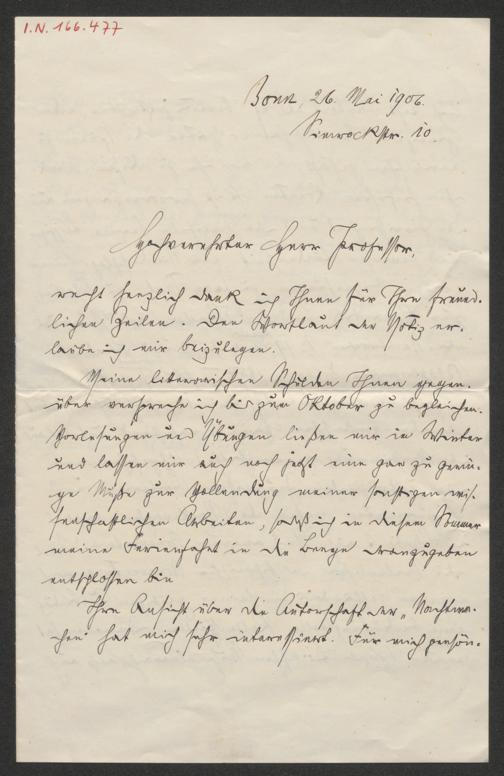 I.N. 166.477
Bonn, 26. Mai 1906.
Simrockstr. 10
Hochverehrter Herr Professor,
recht herzlich dank ich Ihnen für Ihre freund-
lichen Zeilen. Den Wortlaut der Notiz er-
laube ich mir beizulegen.
Meine literarischen Schulden Ihnen gegen-
über verspreche ich bis zum Oktober zu begleichen.
Vorlesungen und Übungen ließen mir im Winter
und lassen mir auch noch jetzt eine gar zu gerin-
ge Muße zur Vollendung meiner sonstigen wis-
senschaftlichen Arbeiten, sodaß ich in diesem Sommer
meine Ferienfahrt in die Berge dranzugeben
entschlossen bin
Ihre Ansicht über die Autorschaft der „Nachtwa-
chen" hat mich sehr interessiert. Für mich persön-